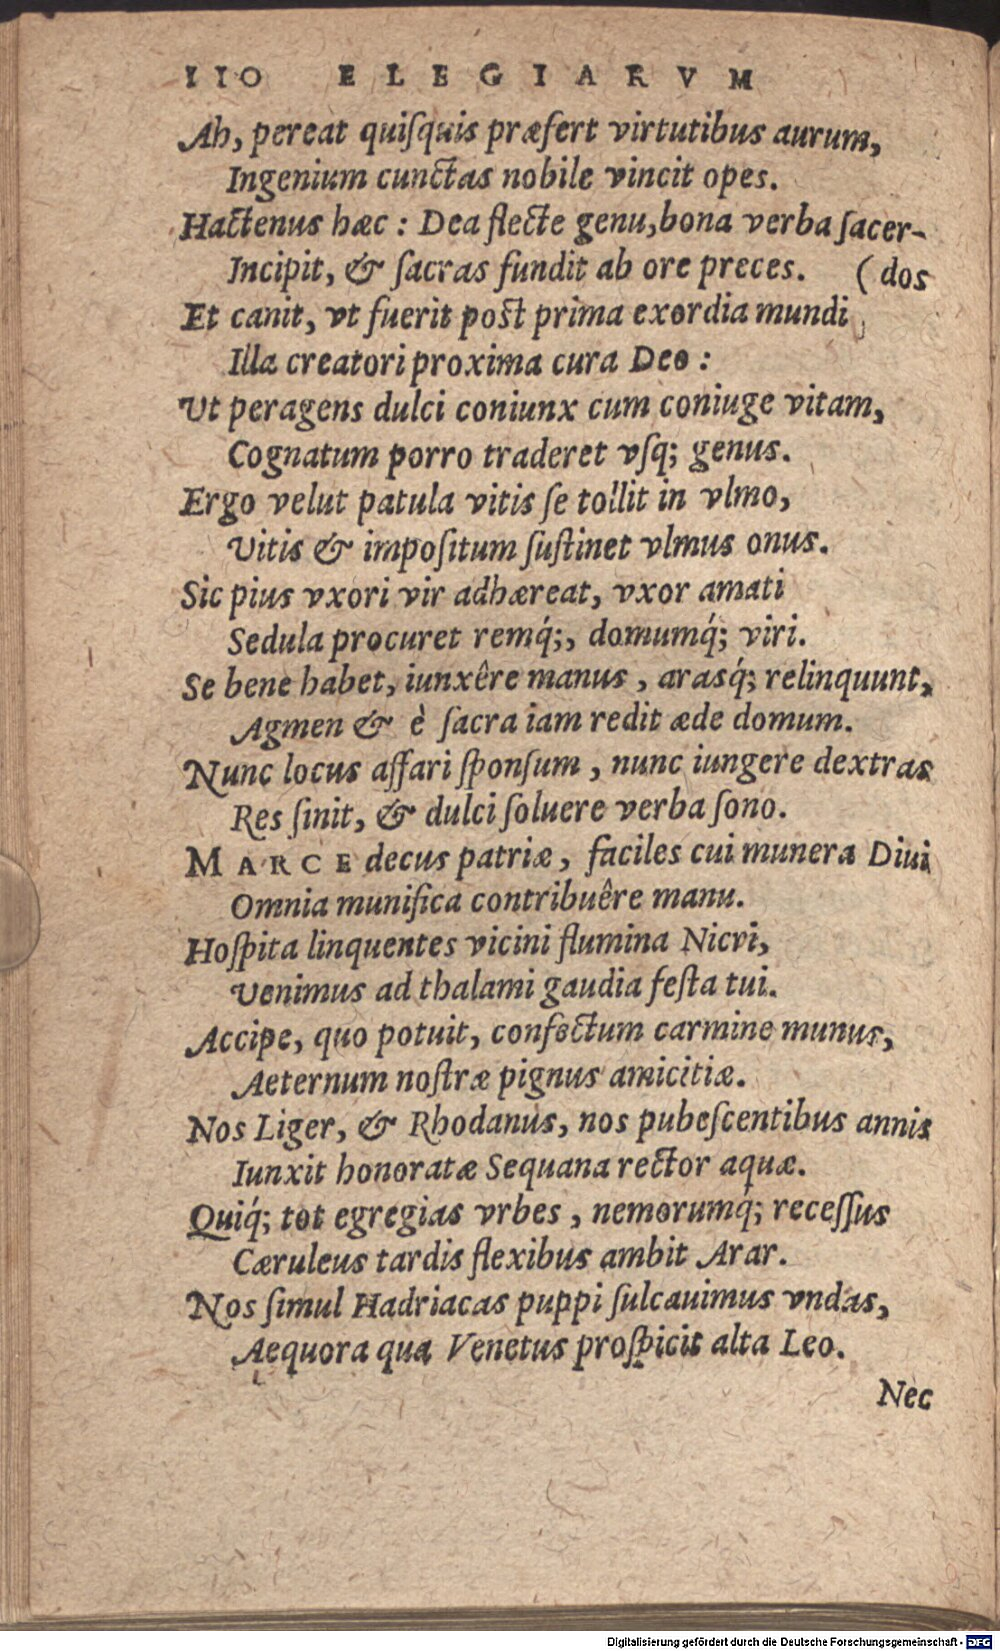 110 ELEGIARVM
Ah, pereat quiſquis præfert virtutibus aurum,
Ingenium cunctas nobile vincit opes.
Hactenus hæc : Dea flecte genu, bona verba ſacer-
Incipit, & ſacras fundit ab ore preces. (dos
Et canit, vt fuerit post prima exordia mundi
Illa creatori proxima cura Deo :
Vt peragens dulci coniunx cum coniuge vitam,
Cognatum porro traderet vſq; genus.
Ergo velut patula vitis ſe tollit in vlmo,
Vitis & impoſitum ſuſtinet vlmus onus.
Sic pius vxori vir adhæreat, vxor amati
Sedula procuret remq́;, domumq́; viri.
Se bene habet, iunxêre manus, arasq́; relinquunt,
Agmen & è ſacra iam redit æde domum.
Nunc locus affari ſponſum, nunc iungere dextras
Res ſinit, & dulci ſoluere verba ſono.
MARCE decus patriæ, faciles cui munera Diui
Omnia munifica contribuêre manu.
Hoſpita linquentes vicini flumina Nicri,
Venimus ad thalami gaudia feſta tui.
Accipe, quo potuit, confectum carmine munus,
Aeternum noſtræ pignus amicitiæ.
Nos Liger, & Rhodanus, nos pubeſcentibus annis
Iunxit honoratæ Sequana rector aquæ.
Quiq́; tot egregias vrbes, nemorumq́; receſſus
Cæruleus tardis flexibus ambit Arar.
Nos ſimul Hadriacas puppi ſulcauimus vndas,
Aequora qua Venetus proſpicit alta Leo.
Nec
Digitalisierung gefördert durch die Deutsche Forschungsgemeinschaft - DFG